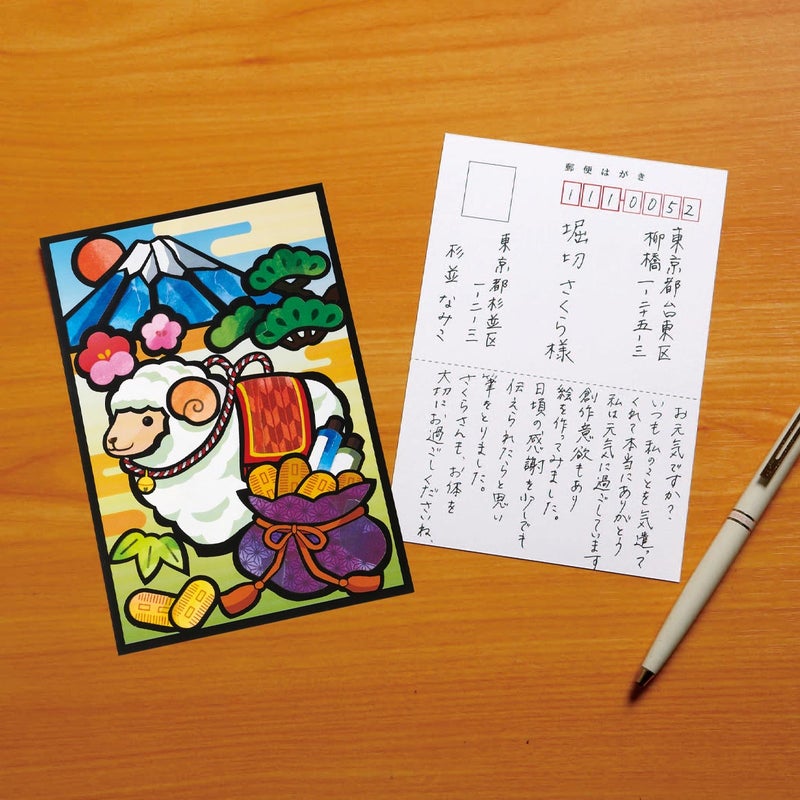 郵便はがき
1110052
東京都台東区
柳橋一-二十五-三
堀切さくら様
東京都杉並区
一-二-三
杉並なみこ
お元気ですか？
いつも私のことを気遣って
くれて本当にありがとう
私は元気に過ごしています
創作意欲もあり
絵を作ってみました。
日頃の感謝を少しでも
伝えられたらと思い
筆をとりました。
さくらさんも、お体を
大切に、お過ごしくださいね、